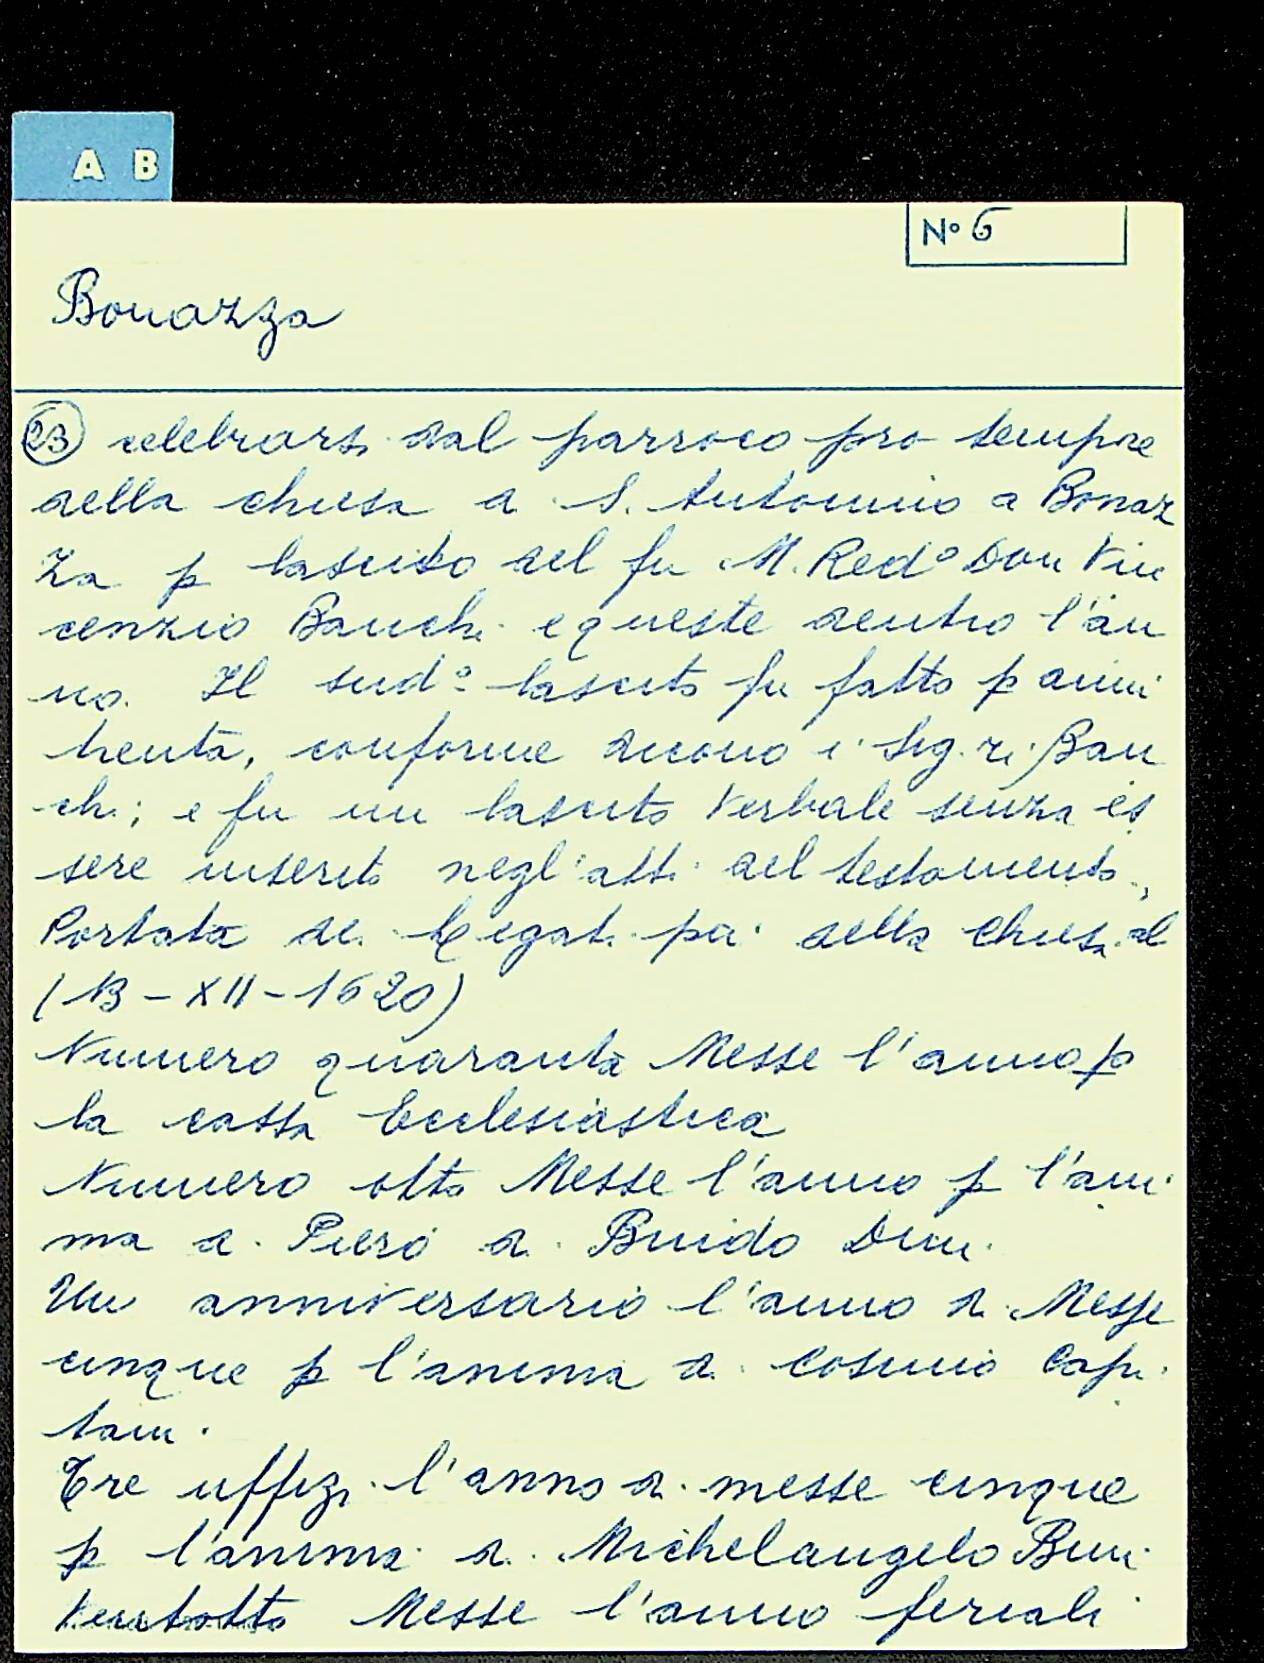 A B
N° 6
Bonazza
(23) celebrarsi dal parroco pro tempore
della chiesa di S. Antonino a Bonaz
za p lascito del fu M. Redº Don Vin
cenzio Banchi e queste dentro l'an
no. Il sudº lascito fu fatto p
, conforme dicono i Sig.ri Ban
chi; e fu un lascito verbale senza es
sere inserito negl'atti del testamento.,
Portata dei Legati pii della Chiesa al
(13-XII-1620)
Numero quaranta Messe l'anno p
la cassa Ecclesiastica
Numero otto Messe l'anno p l'ani
ma di Piero di Guido Dini.
Un anniversario l'anno di Messe
cinque p l'anima di Cosimo Capi
tani.
Tre uffizi l'anno di messe cinque
p l'anima di Michelangelo Buni
Ventotto Messe l'anno feriali